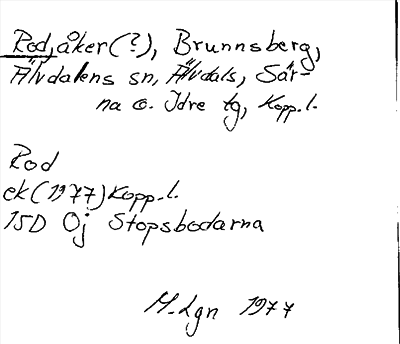 Rod, åker (?), Brunnsberg,
Älvdalens sn, Älvdals, Sär-
na o. Idre tg, Kopp. l.
Rod
ek (1977) Kopp. l.
15D Oj Stopsbodarna
M. Lgn 1977